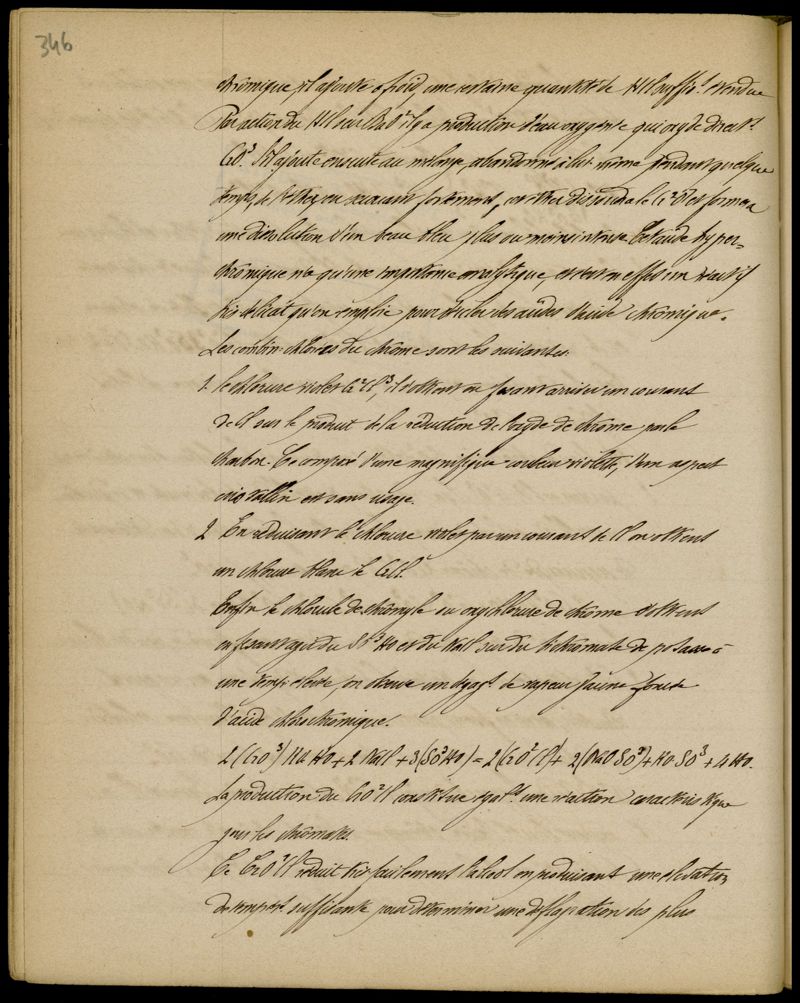 346
chrômique, il ajoute à froid, une certaine quantité de HCl suffist. étendue
Par action du HCl sur BaO² il y a production d'eau oxygénée qui oxyde direct.
CrO³. Il ajoute ensuite au mélange, abandonné à lui même pendant quelque
temps, de l'éther, en secouant fortement, cet éther dissoudra le Cr²O⁷ et formera
une dissolution d'un beau bleu plus ou moins intense. Cet acide hyper-
chrômique n'a qu'une importance analytique, c'est en effet un réactif
très délicat qu'on emploie pour déceler des acides d'acide chrômique.
Les combin. chlorées du chrôme sont les suivantes:
1. le chlorure violet Cr²Cl³, il s'obtient en faisant arriver un courant
de Cl sur le produit de la réduction de l'oxyde de chrôme par le
charbon. Ce composé d'une magnifique couleur violette, d'un aspect
cristallin est sans usage.
2 En réduisant le chlorure violet par un courant de H on obtient
un chlorure blanc le CrCl.
Enfin le chlorure de chrômyle ou oxychlorure de chrôme s'obtient
en faisant agir du SO³HO et du NaCl sur du bichrômate de potasse à
une temp. élevée, on observe un dégagt. de vapeur jaune foncée
d'acide chlorochrômique.
2(CrO³)KO HO + 2 NaCl + 3(SO³HO) = 2(CrO²Cl) + 2(NaO SO³) + KO SO³ + 4 HO.
La production du CrO²Cl constitue égalt. une réaction caractéristique
pour les chrômates.
Ce CrO²Cl réduit très facilement l'alcool en produisant une élévation
de tempér. suffisante pour déterminer une déflagration des plus